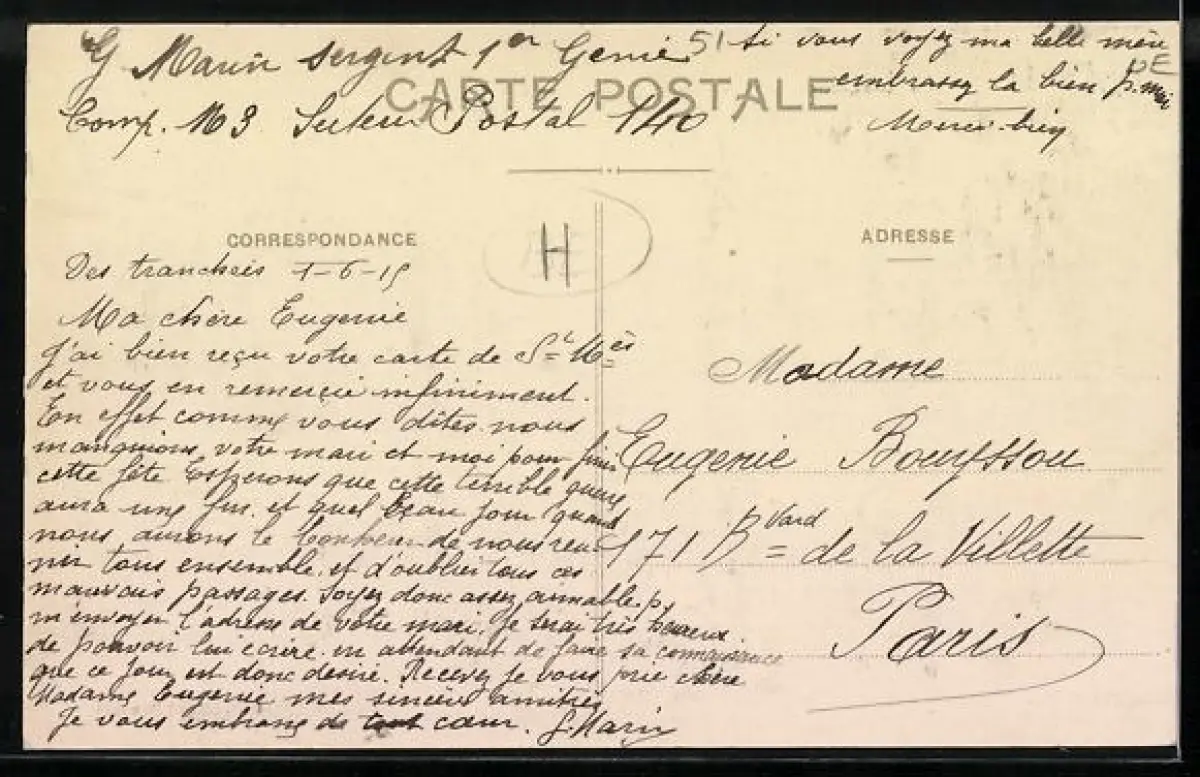 G Marin sergent 1er Genie
Comp. M3 Secteur Postal 140
51 Si vous voyez ma belle mère
embrassez la bien p. moi
Merci bien
CARTE POSTALE
CORRESPONDANCE
H
ADRESSE
Des tranchées 1-6-15
Ma chère Eugenie
J'ai bien reçu votre carte de St
et vous en remercie infiniment.
En effet comme vous dites nous
manquions, votre mari et moi pour finir
cette fête Esperons que cette terrible guerre
aura une fin. et quel beau jour quand
nous aurons le bonheur de nous reu-
nir tous ensemble. et d'oublier tous ces
mauvais passages. Soyez donc assez aimable p.
m'envoyer l'adresse de votre mari. je serai très heureux
de pouvoir lui écrire en attendant de faire sa connaissance
que ce jour est donc desiré. Recevez je vous prie chère
Madame Eugenie mes sincères amitiés
Je vous embrasse de tout cœur. G. Marin
Madame
Eugenie Bouyssou
171 Bvard de la Villette
Paris